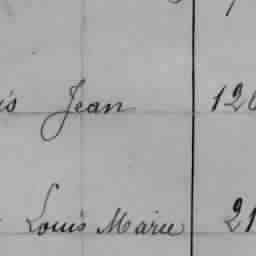 is Jean 120
Louis Marie 21